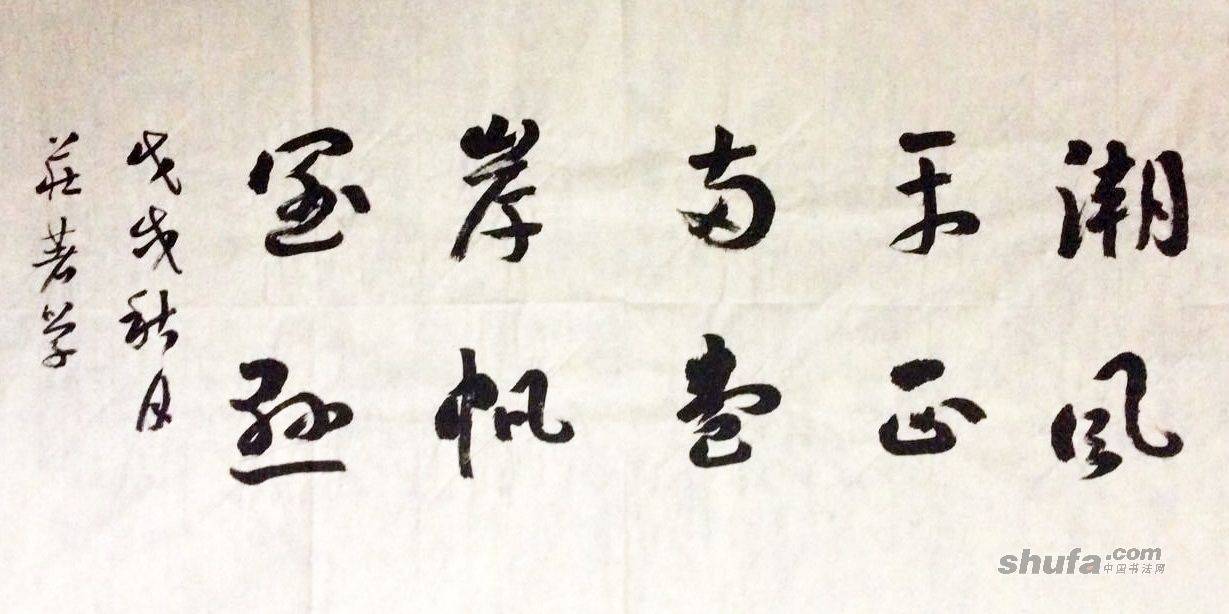 潮平两岸阔
风正壹帆悬
戊戌秋月
莊著学
shufa.com
中国书法网